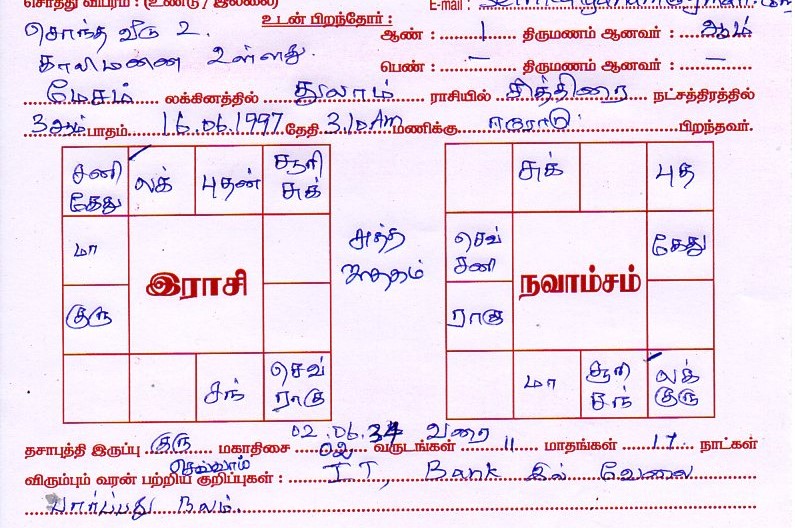 சொத்து விபரம் : (உண்டு / இல்லை) E-mail :
சொந்த வீடு 2. உடன் பிறந்தோர் : ஆண் : 1 திருமணம் ஆனவர் : ஆம்
காலிமனை உள்ளது. பெண் : — திருமணம் ஆனவர் : —
மேசம் லக்கினத்தில் துலாம் ராசியில் சித்திரை நட்சத்திரத்தில்
3ஆம் பாதம் 16.06.1997 தேதி 3.10 AM மணிக்கு ஈரோடு பிறந்தவர்.
சனி கேது லக் புதன் சூரி சுக்
மா
குரு
இராசி
சந் செவ் ராகு
சுத்த ஜாதகம்
சுக் புத
செவ் சனி கேது
ராகு
நவாம்சம்
மா சூரி சந் லக் குரு
02.06.34 வரை
தசாபுத்தி இருப்பு குரு மகாதிசை 02 வருடங்கள் 11 மாதங்கள் 17 நாட்கள்
விரும்பும் வரன் பற்றிய குறிப்புகள் : IT, Bank இல் வேலை
பார்ப்பது நலம்.